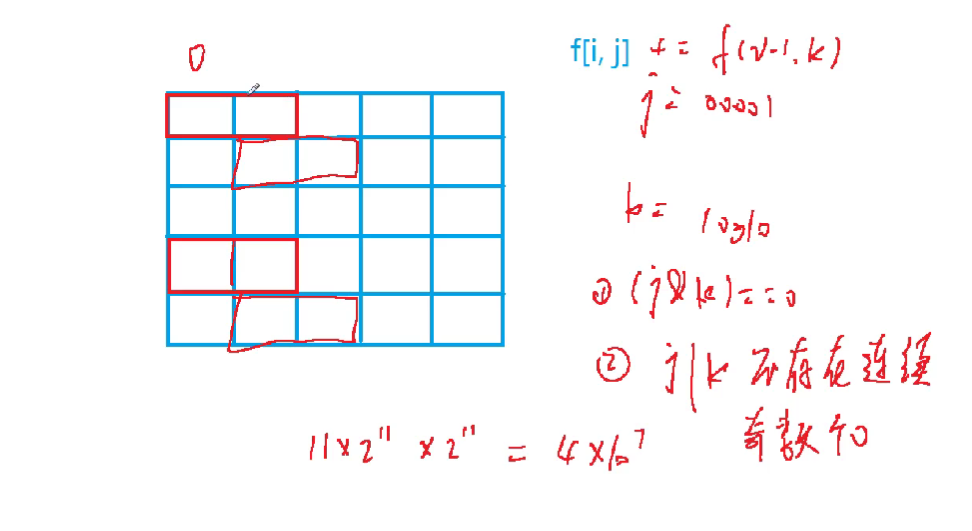 0
f[i, j] += f(i-1, k)
j = 00001
k = 10010
① (j & k) == 0
② j | k 不存在连续
奇数个0
11 × 2^11 × 2^11 = 4 × 10^7